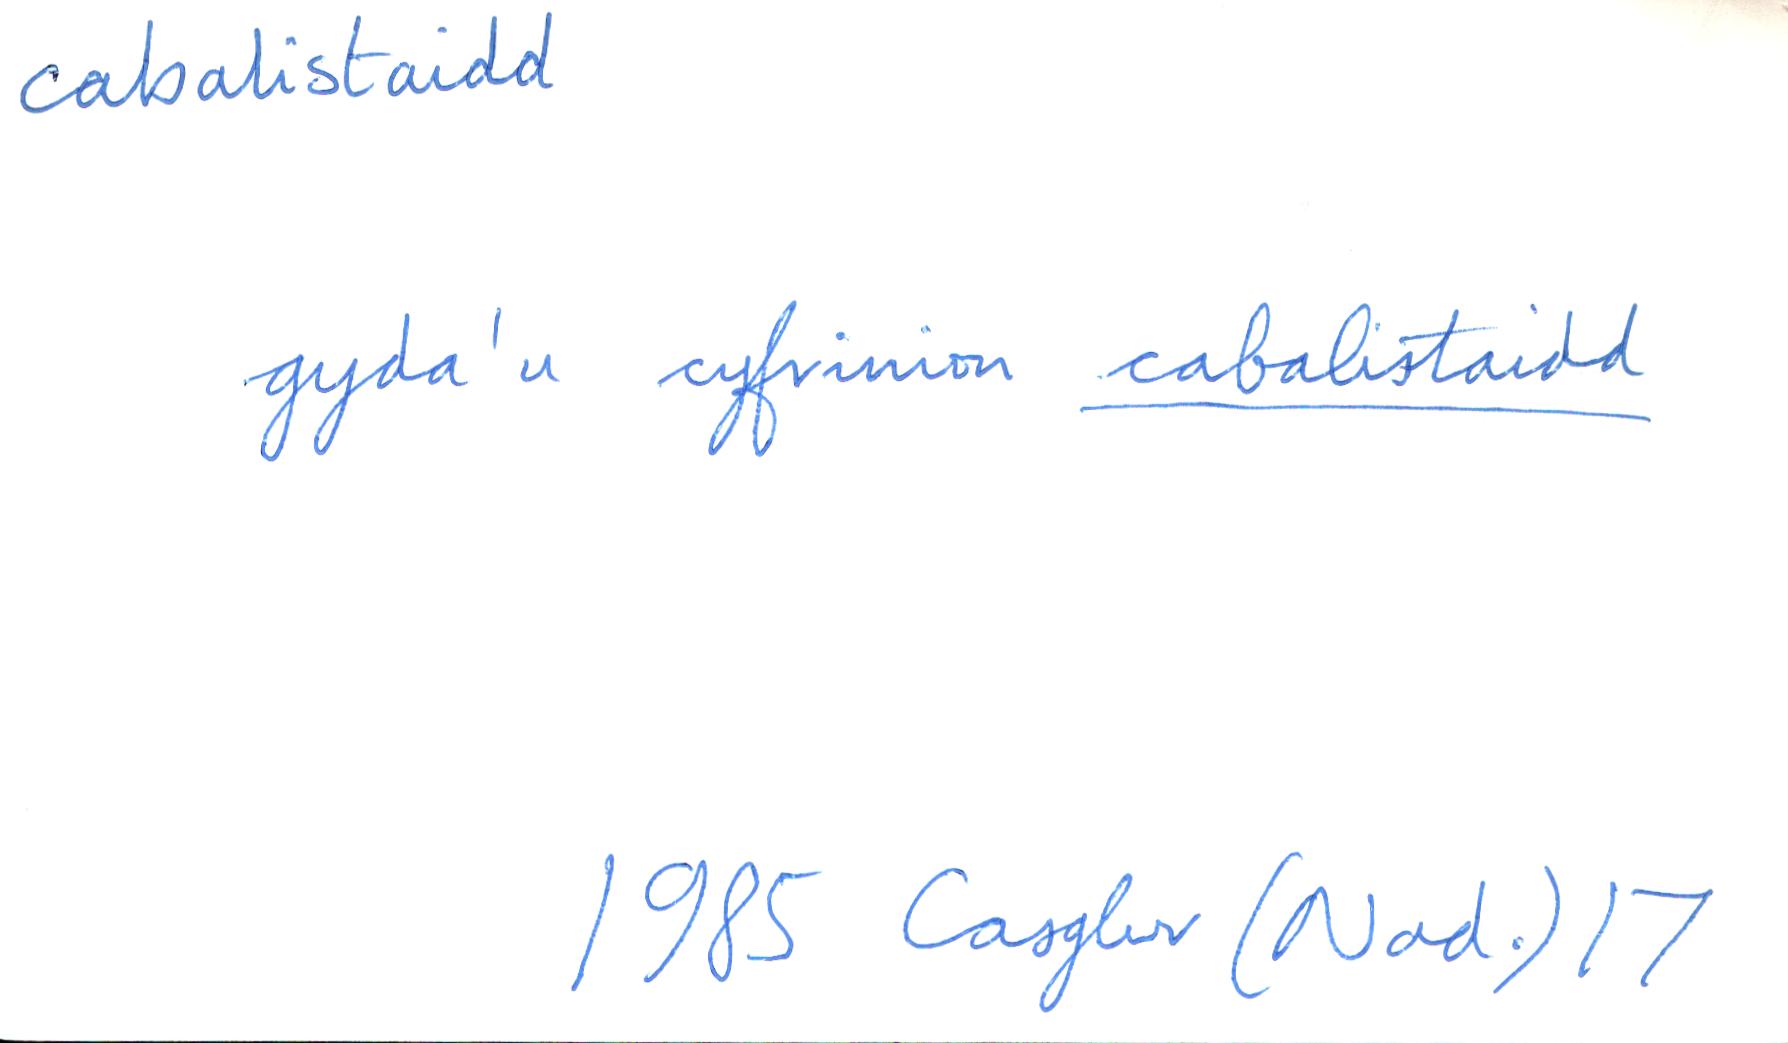 cabalistaidd
gyda'u cyfrinion cabalistaidd
1985 Casglwr (Nad.) 17